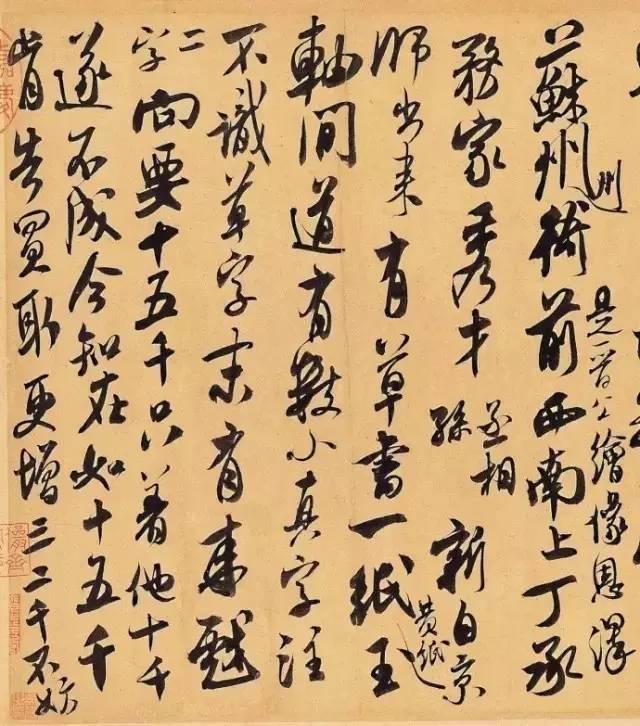 州
是晉公繪像恩澤
蘇州衙前西南上丁承
務家秀才
丞相
孫
新自京
黃紙
師出來有草書一紙玉
軸間道有數小真字注
不識草字末有來戲
二
字向要十五千只着他十千
遂不成今知在如十五千
肯告買取更增三二千不妨